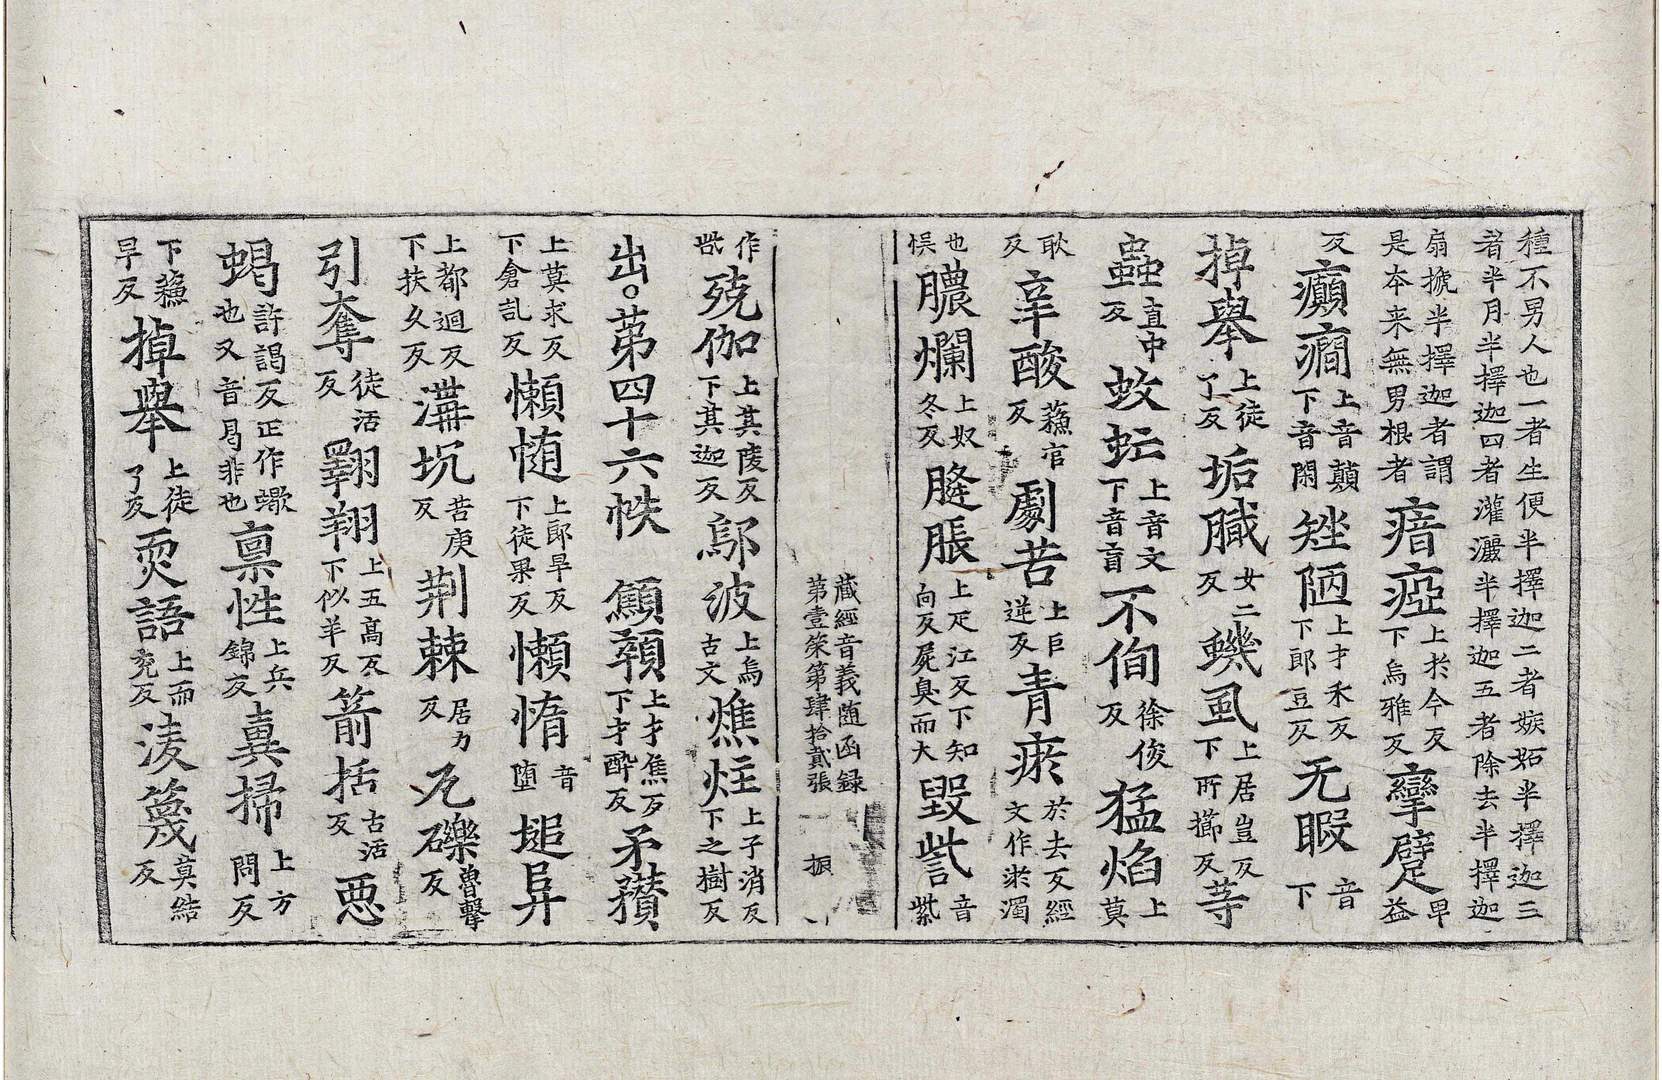 種不男人也一者生便半擇迦二者嫉妬半擇迦三
者半月半擇迦四者灌灑半擇迦五者除去半擇迦
扇搋半擇迦者謂
是本来無男根者
瘖瘂
上於今反
下烏雅反
攣躄
下
益
反
癲癇
上音顛
下音閑
矬陋
上才禾反
下郎豆反
无暇
音
下
掉舉
上徒
了反
垢膱
女二
反
蟣虱
上居豈反
下所擳反
等
蟲
直中
反
蚊蝱
上音文
下音盲
不侚
徐俊
反
猛焰
上
莫
耿
反
辛酸
蘓官
反
劇苦
上巨
逆反
青瘀
於去反經
文作淤濁
也
悮
膿爛
上奴
冬反
胮脹
上疋江反下知
向反屍臭而大
毀呰
音
紫
藏經音義随函録
第壹筞第肆拾貳張
振
作
㱔
殑伽
上其陵反
下其迦反
鄔波
上烏
古文
燋炷
上子消反
下之樹反
出。苐四十六帙
顦顇
上才焦反
下才醉反
矛䂎
上莫求反
下倉乱反
懶㯐
上郎旱反
下徒果反
懶惰
音
堕
塠𨸏
上都迴反
下扶久反
溝坑
苦庚
反
荆棘
居力
反
瓦礫
魯擊
反
引奪
徒活
反
翺翔
上五高反
下似羊反
箭括
古活
反
惡
蝎
許謁反正作蠍
也又音曷非也
禀性
上兵
錦反
糞掃
上方
問反
下蘓
早反
掉舉
上徒
了反
耎語
上而
兖反
淩篾
莫結
反